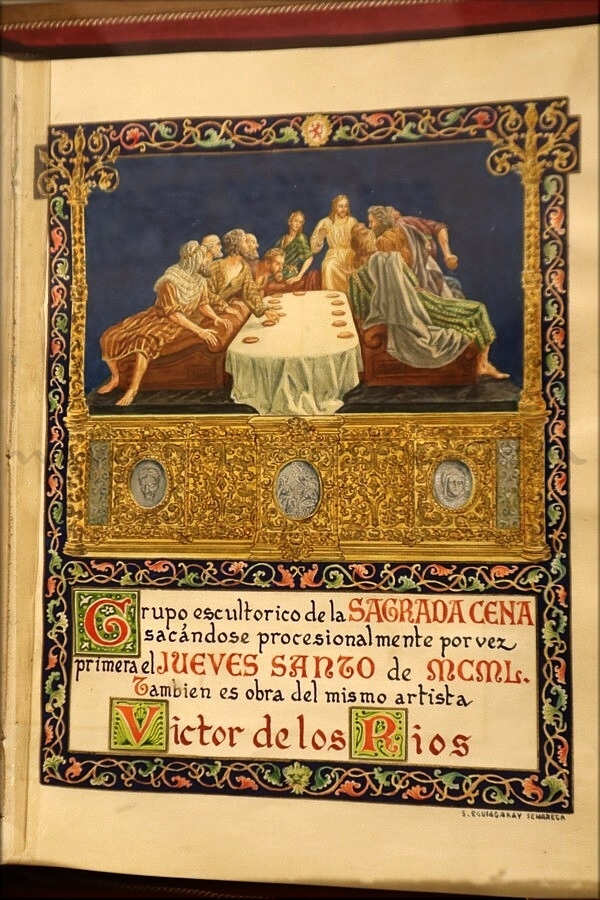 Grupo escultorico de la SAGRADA CENA
sacándose procesionalmente por vez
primera el JUEVES SANTO de MCML.
Tambien es obra del mismo artista
Victor de los Rios
S. EGUIAGARAY SENAREGA